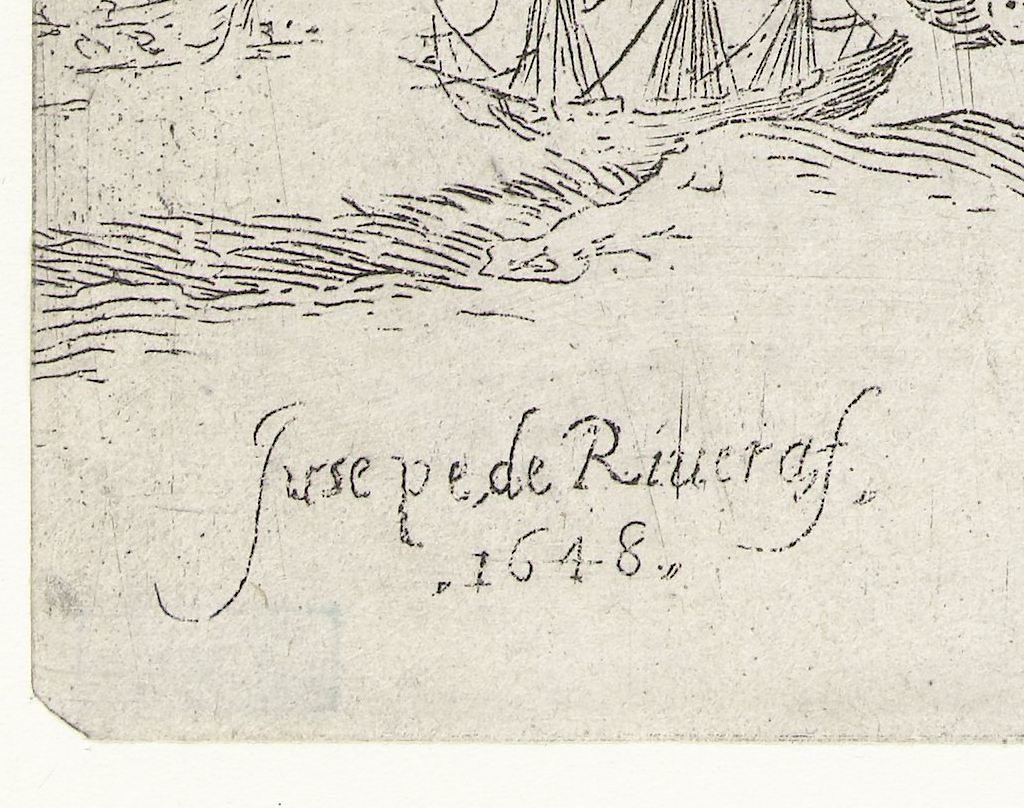 Jusepe, de Riuera f,
,1648.,,